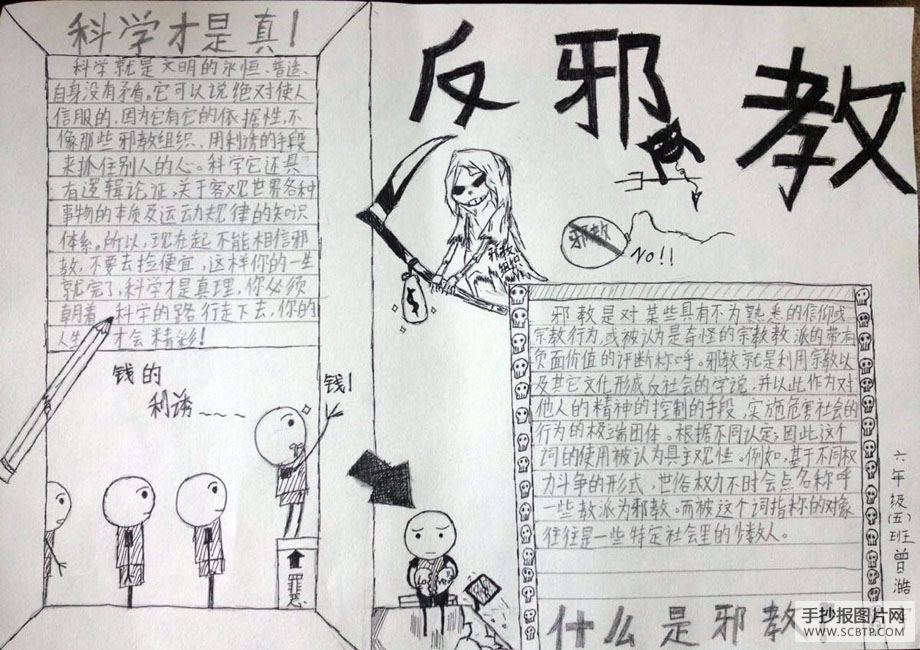 科学才是真!
科学就是文明的永恒、普适、
自身没有矛盾。它可以说绝对使人
信服的,因为它有它的依据性,不
像那些邪教组织,用利诱的手段
来抓住别人的心。科学它还具
有逻辑论证,关于客观世界各种
事物的本质及运动规律的知识
体系。所以,现在起不能相信邪
教,不要去捡便宜,这样你的一生
就完了,科学才是真理,你必须
朝着 科学的路行走下去,你的
人生 才会精彩!
钱的
利诱~~~
钱!
罪恶
反邪教
邪教
组织
$
邪教
No!!
邪教是对某些具有不为熟悉的信仰或
宗教行为,或被认为是奇怪的宗教教派的带有
负面价值的评断称呼。邪教就是利用宗教以
及其它文化形成反社会的学说,并以此作为对
他人的精神的控制的手段,实施危害社会的
行为的极端团体。根据不同认定;因此这个
词的使用被认为具主观性。例如,基于不同权
力斗争的形式,世俗权力不时会点名称呼
一些教派为邪教。而被这个词指称的对象
往往是一些特定社会里的少数人。
什么是邪教
六年级(五)班曾浩
Love
手抄报图片网
WWW.SCBTP.COM